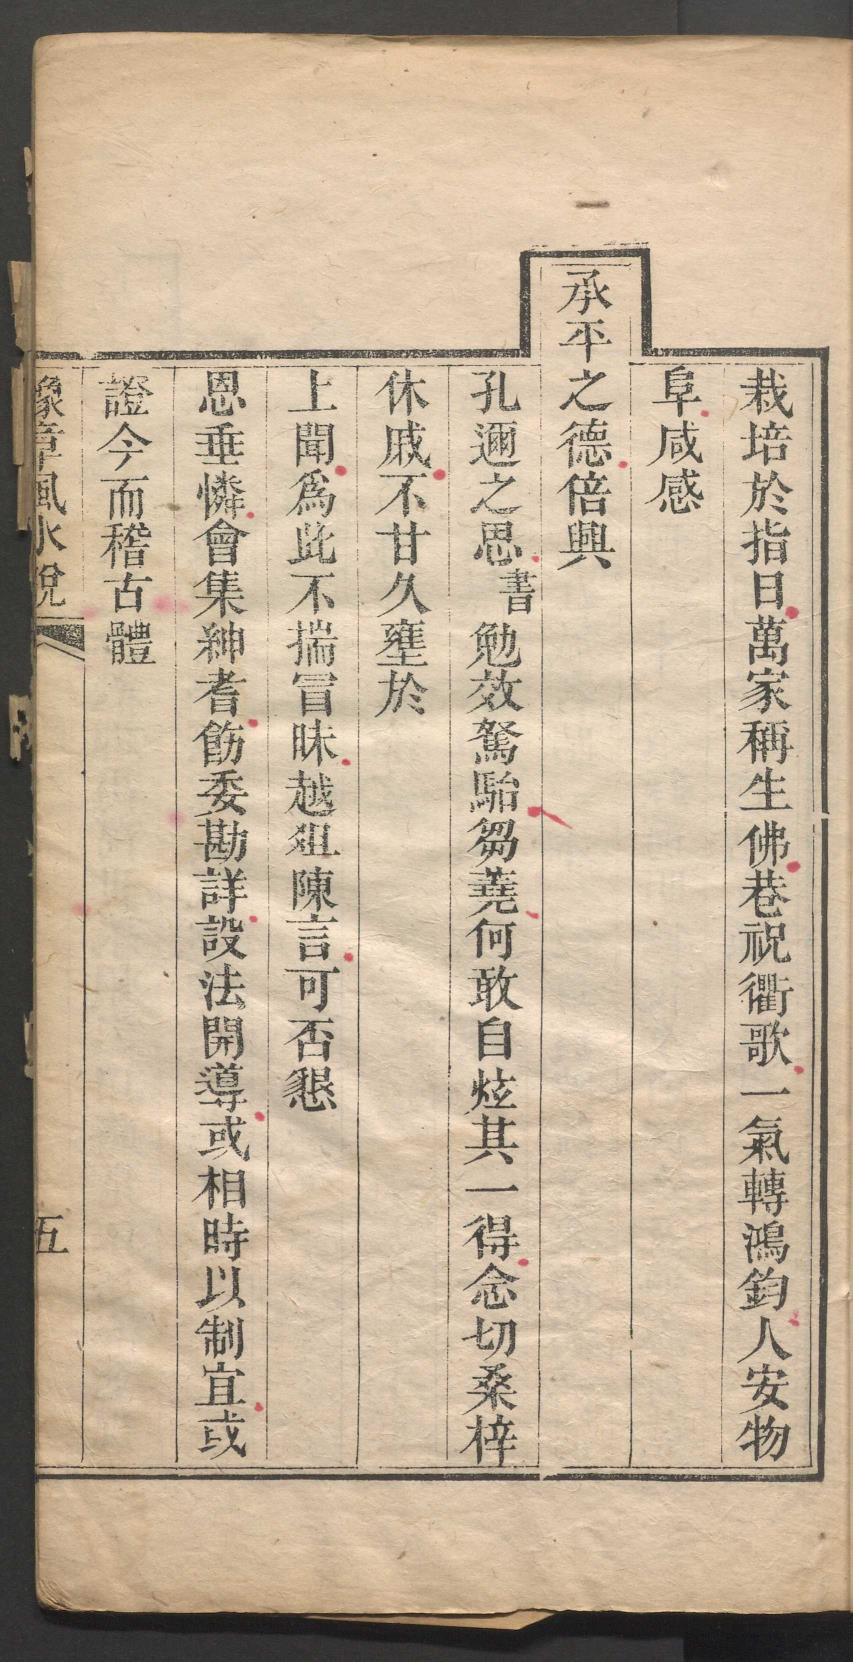 栽培於指日萬家稱生佛巷祝衢歌一氣轉鴻鈞人安物
阜咸感
承平之德倍興
孔邇之思書勉效駑駘芻蕘何敢自炫其一得念切桑梓
休戚不甘久壅於
上聞爲此不揣冒昧越俎陳言可否懇
恩垂憐會集紳耆飭委勘詳設法開導或相時以制宜或
證今而稽古體
豫章風水說
五